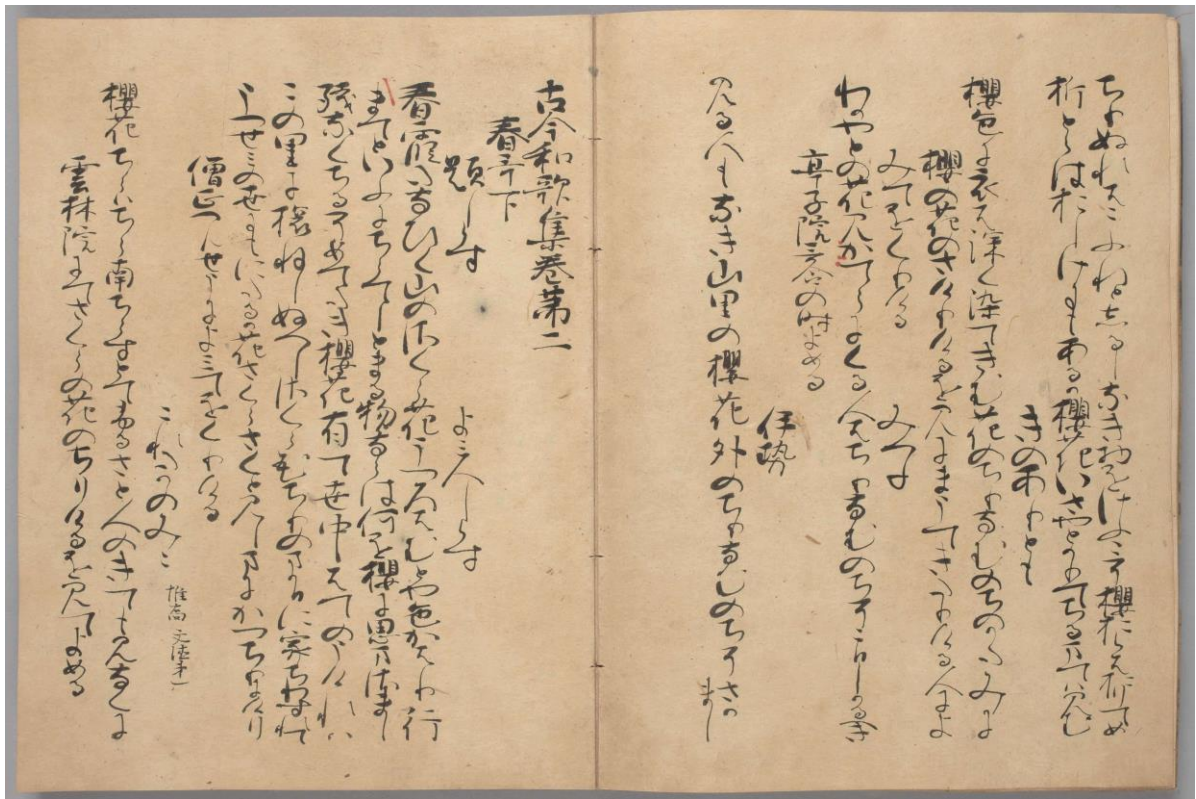 ちりぬれはこふれとしるしなき物をけふこそ櫻おらは折てめ
折とらはおしけにもあるか櫻花いさやとかりてちるまては見む
きのありとも
櫻色に衣は深く染てきむ花のちりなむのちのかたみに
櫻の花のさけりけるを見にまうてきたりける人によ
みてをくりける　みつね
わかやとの花見かてらにくる人はちりなむのちそこひしかるへき
亭子院哥合の時よめる
伊勢
見る人もなき山里の櫻花外のちりなむのちそさか
まし
古今和歌集巻第二
春哥下
題しらす　よみ人しらす
春霞たなひく山のさくら花うつろはむとや色かはり行
まてといふにちらてしとまる物ならは何を櫻に思まさまし
残なくちるそめてたき櫻花有て世中はてのうけれは
この里に旅ねしぬへしさくら花ちりのまかひに家ちわすれて
うつせみの世にもにたるか花さくらさくと見しまにかつちりにけり
僧正へんせうによみてをくりける
これたかのみこ　惟喬　文徳第一
櫻花ちらはちら南ちらすとてふるさと人のきても見なくに
雲林院にてさくらの花のちりけるを見てよめる